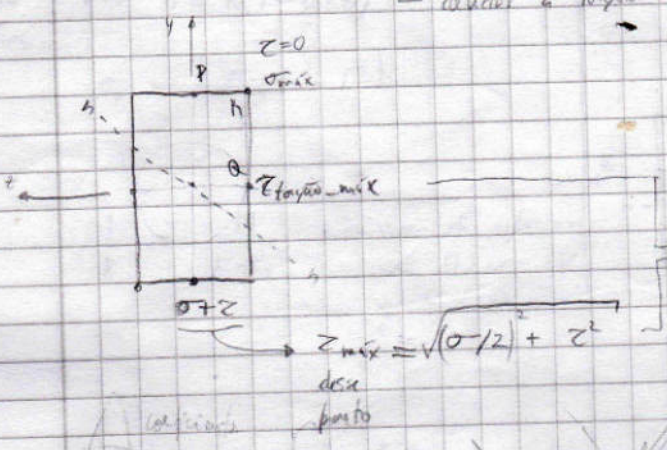 y
τ=0
P
σmáx
n
R
Q
z
τtorção_máx
n
σ+τ
τmáx = √(σ/2)² + τ²
desse
ponto